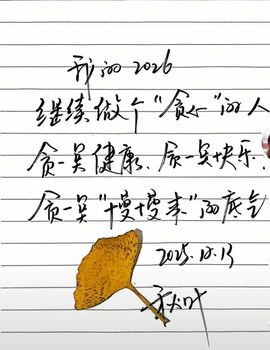 我的2026
继续做个“贪心”的人
贪一点健康、贪一点快乐、
贪一点“慢慢来”的底气
2025.12.13
秋叶